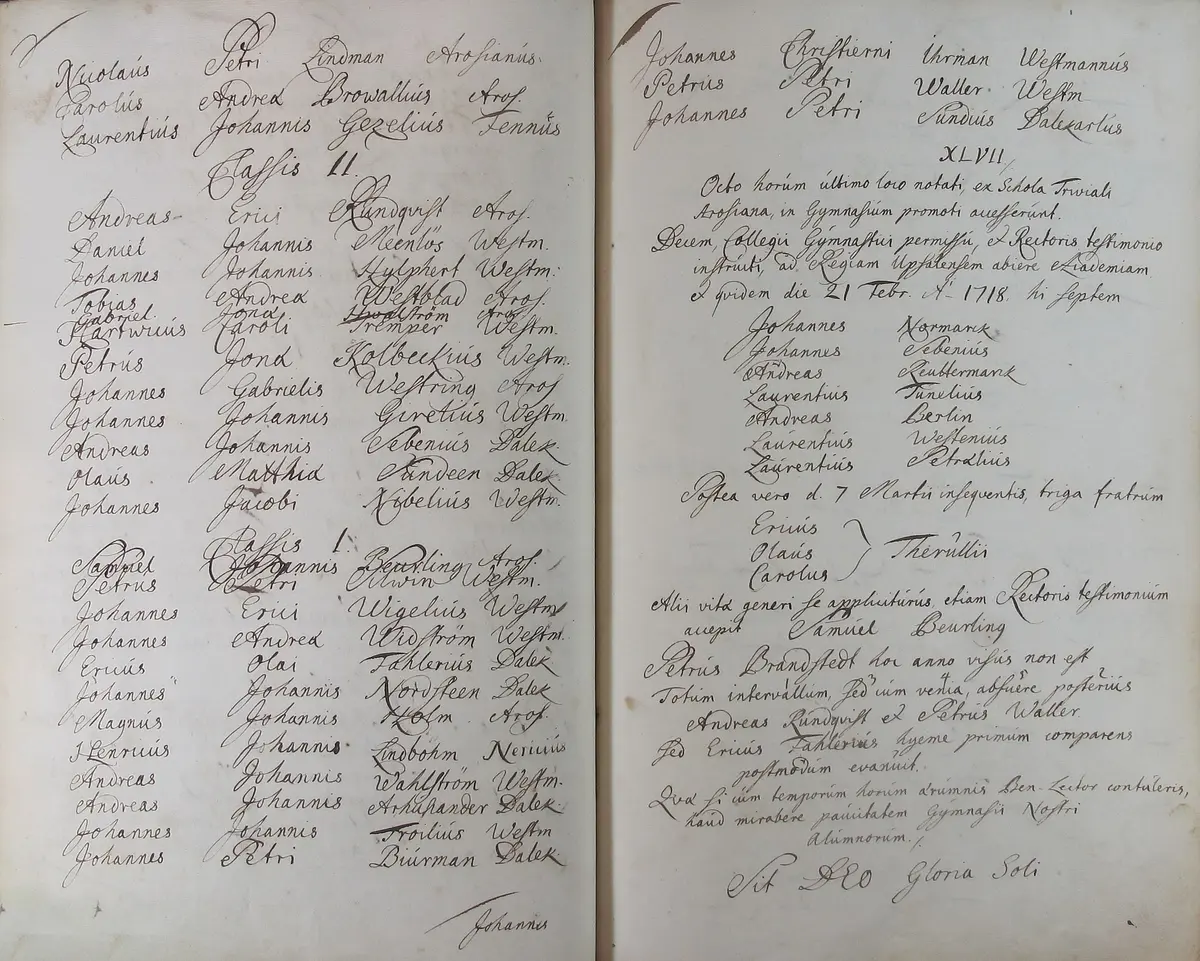 Nicolaús Petri Lindman Arosianús.
Carolús Andreæ Browalliús Aros.
Laurentiús Johannis Gezeliús Fennús
Classis II.
Andreas Erici Rúndqvist Aros.
Daniel Johannis Meenlös Westm.
Johannes Johannis Hylphert Westm:
Tobias Andreæ Westblad Aros.
Gabriel Jonæ Hwalström Aros.
Hartwicús Caroli Tremper Westm.
Petrús Jonæ Kolbeckiús Westm.
Johannes Gabrielis Westring Aros
Johannes Johannis Giretiús Westm.
Andreas Johannis Sebeniús Dalek.
Olaús Matthiæ Súndeen Dalek
Johannes Jacobi Nibeliús Westm.
Classis I.
Samúel Johannis Beurling Aros.
Petrús Petri Silwin Westm.
Johannes Erici Wigeliús Westm
Johannes Andreæ Widström Westm.
Ericús Olai Fahleriús Dalek
Johannes Johannis Nordsteen Dalek
Magnús Johannis Holm Aros.
Henricús Johannis Lindbohm Nericiús
Andreas Johannis Wahlström Westm.
Andreas Johannis Arhusiander Dalek
Johannes Johannis Troiliús Westm
Johannes Petri Biúrman Dalek
Johannis
Johannes Christierni Uhrman Westmannús
Petrús Petri Waller Westm
Johannes Petri Súndiús Dalekarlús
XLVII
Octo horúm último loco notati, ex Schola Triviali
Arosiana, in Gymnasiúm promoti accesserúnt.
Decem, Collegii Gýmnastici permissú, et Rectoris testimonio
instrúcti, ad Regiam Upsalensem abiere Academiam
et qvidem die 21 Febr. A. 1718. hi septem
Johannes Normarck
Johannes Sebeniús
Andreas Reutermarck
Laúrentiús Túneliús
Andreas Berlin
Laúrentiús Westeniús
Laúrentiús Petræiús
Postea vero d. 7 Martii inseqventis, triga fratrúm
Ericús
Olaús Therúllii
Carolus
Alii vitæ generi se appliciturús, etiam Rectoris testimoniúm
accepit Samúel Beurling
Petrús Brandstedt hoc anno visús non est
Totúm intervallum, sed cúm venia, absúere posteriús
Andreas Rúndqvist et Petrús Waller.
Sed Ericús Fahleriús hyeme primúm comparens
postmodúm evanúit.
Qvæ si cúm temporúm horúm ærúmnis Ben. Lector contúleris,
haúd mirabere paúcitatem Gýmnasii Nostri
Alúmnorúm.
Sit DEO Gloria Soli